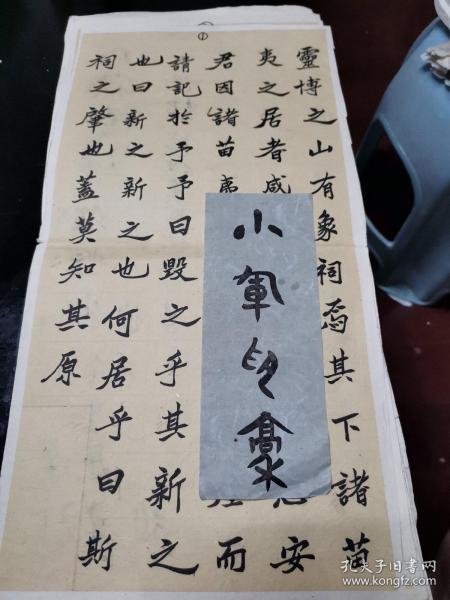 ①
靈博之山有象祠焉其下諸苗
夷之居者咸 安
君因諸苗夷 而
請記於予予曰毀之乎其新之
也曰新之新之也何居乎曰斯
祠之肇也蓋莫知其原
小軍印稾
孔夫子旧书网
www.kongfz.com